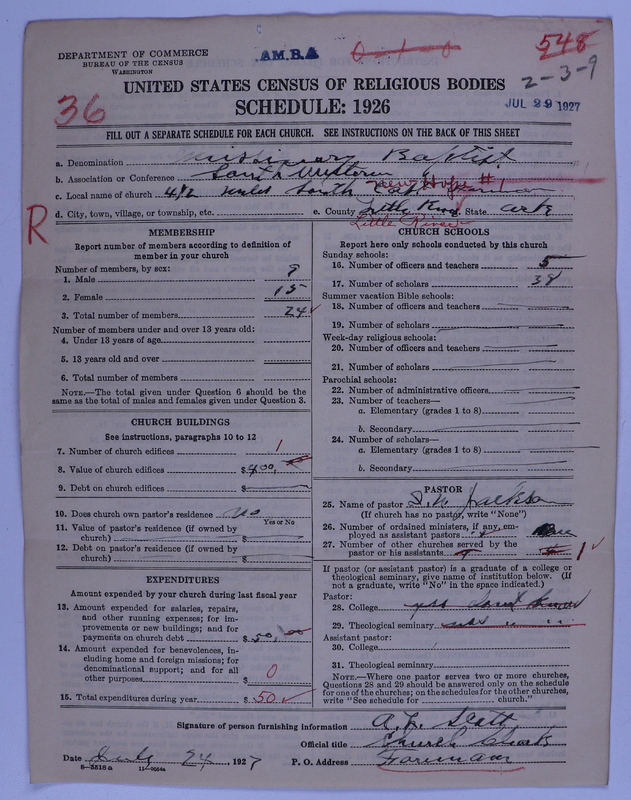 DEPARTMENT OF COMMERCE
BUREAU OF THE CENSUS
WASHINGTON
A.M.B.A
548
2-3-9
UNITED STATES CENSUS OF RELIGIOUS BODIES
SCHEDULE: 1926
36
JUL 29 1927
FILL OUT A SEPARATE SCHEDULE FOR EACH CHURCH. SEE INSTRUCTIONS ON THE BACK OF THIS SHEET
a. Denomination Missionary Baptist
b. Association or Conference South Western
c. Local name of church 4 1/2 miles South New Hope #1
R
d. City, town, village, or township, etc. e. County Little River State Ark
Little River
MEMBERSHIP
Report number of members according to definition of member in your church
Number of members, by sex:
1. Male 9
2. Female 15
3. Total number of members 24 ✓
Number of members under and over 13 years old:
4. Under 13 years of age
5. 13 years old and over
6. Total number of members
NOTE.—The total given under Question 6 should be
same as the total of males and females given under Question 3.
CHURCH BUILDINGS
See instructions, paragraphs 10 to 12
7. Number of church edifices 1
8. Value of church edifices $400.
9. Debt on church edifices $
10. Does church own pastor's residence no
Yes or No
11. Value of pastor's residence (if owned by
church) $
12. Debt on pastor's residence (if owned by
church) $
EXPENDITURES
Amount expended by your church during last fiscal year
13. Amount expended for salaries, repairs,
and other running expenses; for im-
provements or new buildings; and for
payments on church debt $50.00
14. Amount expended for benevolences, in-
cluding home and foreign missions; for
denominational support; and for all
other purposes $ 0
15. Total expenditures during year $ 50 ✓
CHURCH SCHOOLS
Report here only schools conducted by this church
Sunday schools:
16. Number of officers and teachers 5
17. Number of scholars 38
Summer vacation Bible schools:
18. Number of officers and teachers
19. Number of scholars
Week-day religious schools:
20. Number of officers and teachers
21. Number of scholars
Parochial schools:
22. Number of administrative officers
23. Number of teachers—
a. Elementary (grades 1 to 8)
b. Secondary
24. Number of scholars—
a. Elementary (grades 1 to 8)
b. Secondary
PASTOR
25. Name of pastor Jackson
(If church has no pastor, write "None")
26. Number of ordained ministers, if any, em-
ployed as assistant pastors
27. Number of other churches served by the
pastor or his assistants 1 ✓
If pastor (or assistant pastor) is a graduate of a college or
theological seminary, give name of institution below. (If
not a graduate, write "No" in the space indicated.)
Pastor:
28. College
29. Theological seminary
Assistant pastor:
30. College
31. Theological seminary
NOTE.—Where one pastor serves two or more churches,
Questions 28 and 29 should be answered only on the schedule
for one of the churches; on the schedules for the other churches,
write "See schedule for church."
Signature of person furnishing information A. L. Scott
Official title Church Clerk
Date July 24, 1927 P. O. Address Foreman
8-5518a